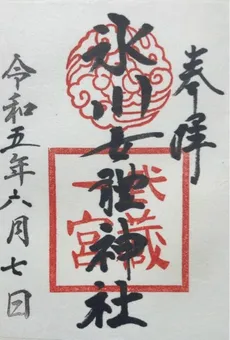 奉拝
氷川女體神社
武蔵一宮
令和五年六月七日